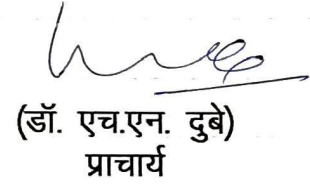 (डॉ. एच.एन. दुबे)
प्राचार्य